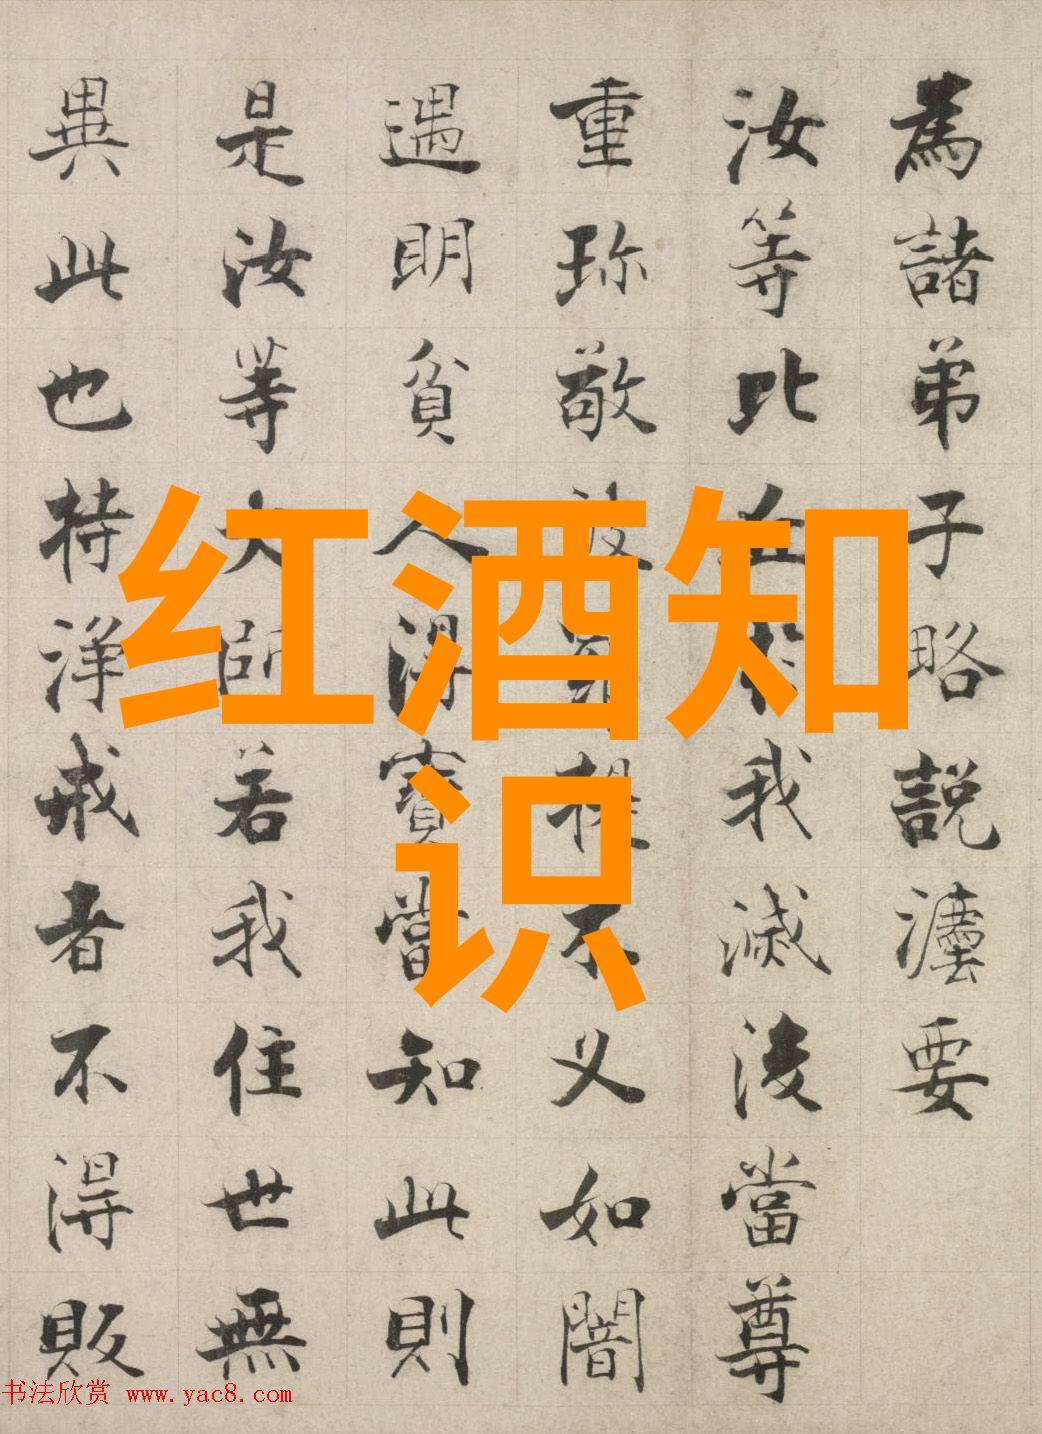 為諸弟子略說灋要
汝等比丘於我滅後當尊
重珎敬波羅提木叉如闇
遇明貧人得寶當知此則
是汝等大師若我住世無
異此也持淨戒者不得販
红酒知
识
书法欣赏 www.yac8.com